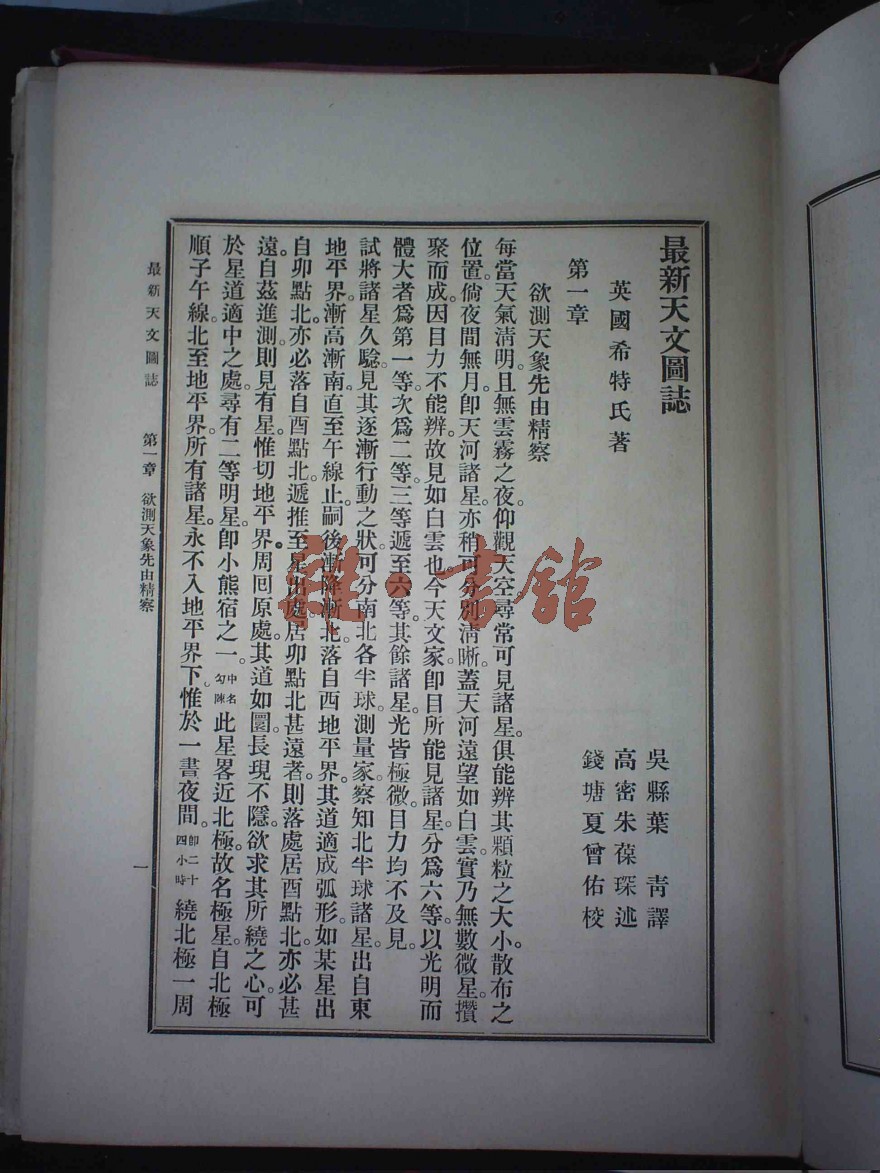 最新天文圖誌
英國希特氏著
吳縣葉青譯
高密朱葆琛述
錢塘夏曾佑校
第一章
欲測天象先由精察
每當天氣清明。且無雲霧之夜。仰觀天空尋常可見諸星。俱能辨其顆粒之大小散布之
位置。倘夜間無月。卽天河諸星。亦稍可分別清晰。蓋天河遠望如白雲。實乃無數微星。攢
聚而成。因目力不能辨。故見如白雲也。今天文家卽目所能見諸星。分爲六等。以光明而
體大者爲第一等。次爲二等。三等遞至六等。其餘諸星。光皆極微。目力均不及見。
試將諸星久驗。見其逐漸行動之狀。可分南北各半球。測量家。察知北半球諸星。出自東
地平界。漸高漸南。直至午線止。嗣後漸降漸北。落自西地平界。其道適成弧形。如某星出
自卯點北。亦必落自酉點北。遞推至星出處。居卯點北甚遠者。則落處居酉點北。亦必甚
遠。自茲進測。則見有星。惟切地平界。周回原處。其道如圜。長現不隱。欲求其所繞之心。可
於星道適中之處。尋有二等明星。卽小熊宿之一。中名勾陳此星畧近北極。故名極星。自北極
順子午線。北至地平界。所有諸星。永不入地平界下。惟於一晝夜間。卽二十四小時繞北極一周
最新天文圖誌 第一章 欲測天象先由精察
一
雜·書館